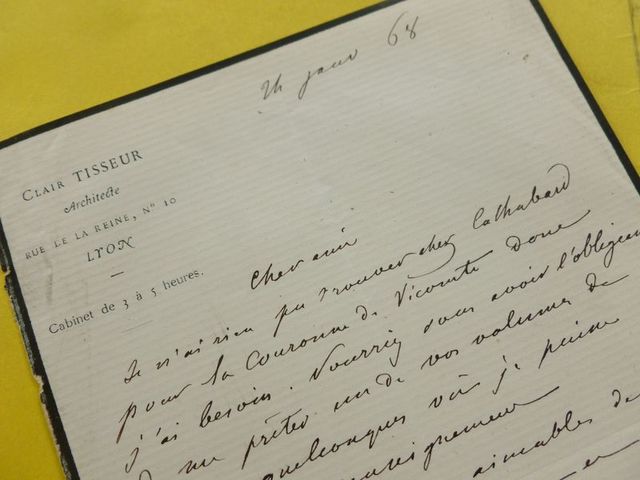 24 janv 68
CLAIR TISSEUR
Architecte
RUE DE LA REINE, Nº 10
LYON
Cabinet de 3 à 5 heures.
Cher ami
Je n'ai rien pu trouver chez Cathabard
pour la Couronne de Vicomte dont
j'ai besoin. Pourriez vous avoir l'obligean
me prêter un de vos volumes de
quelconques où je puisse
renseignement
aimables de
en